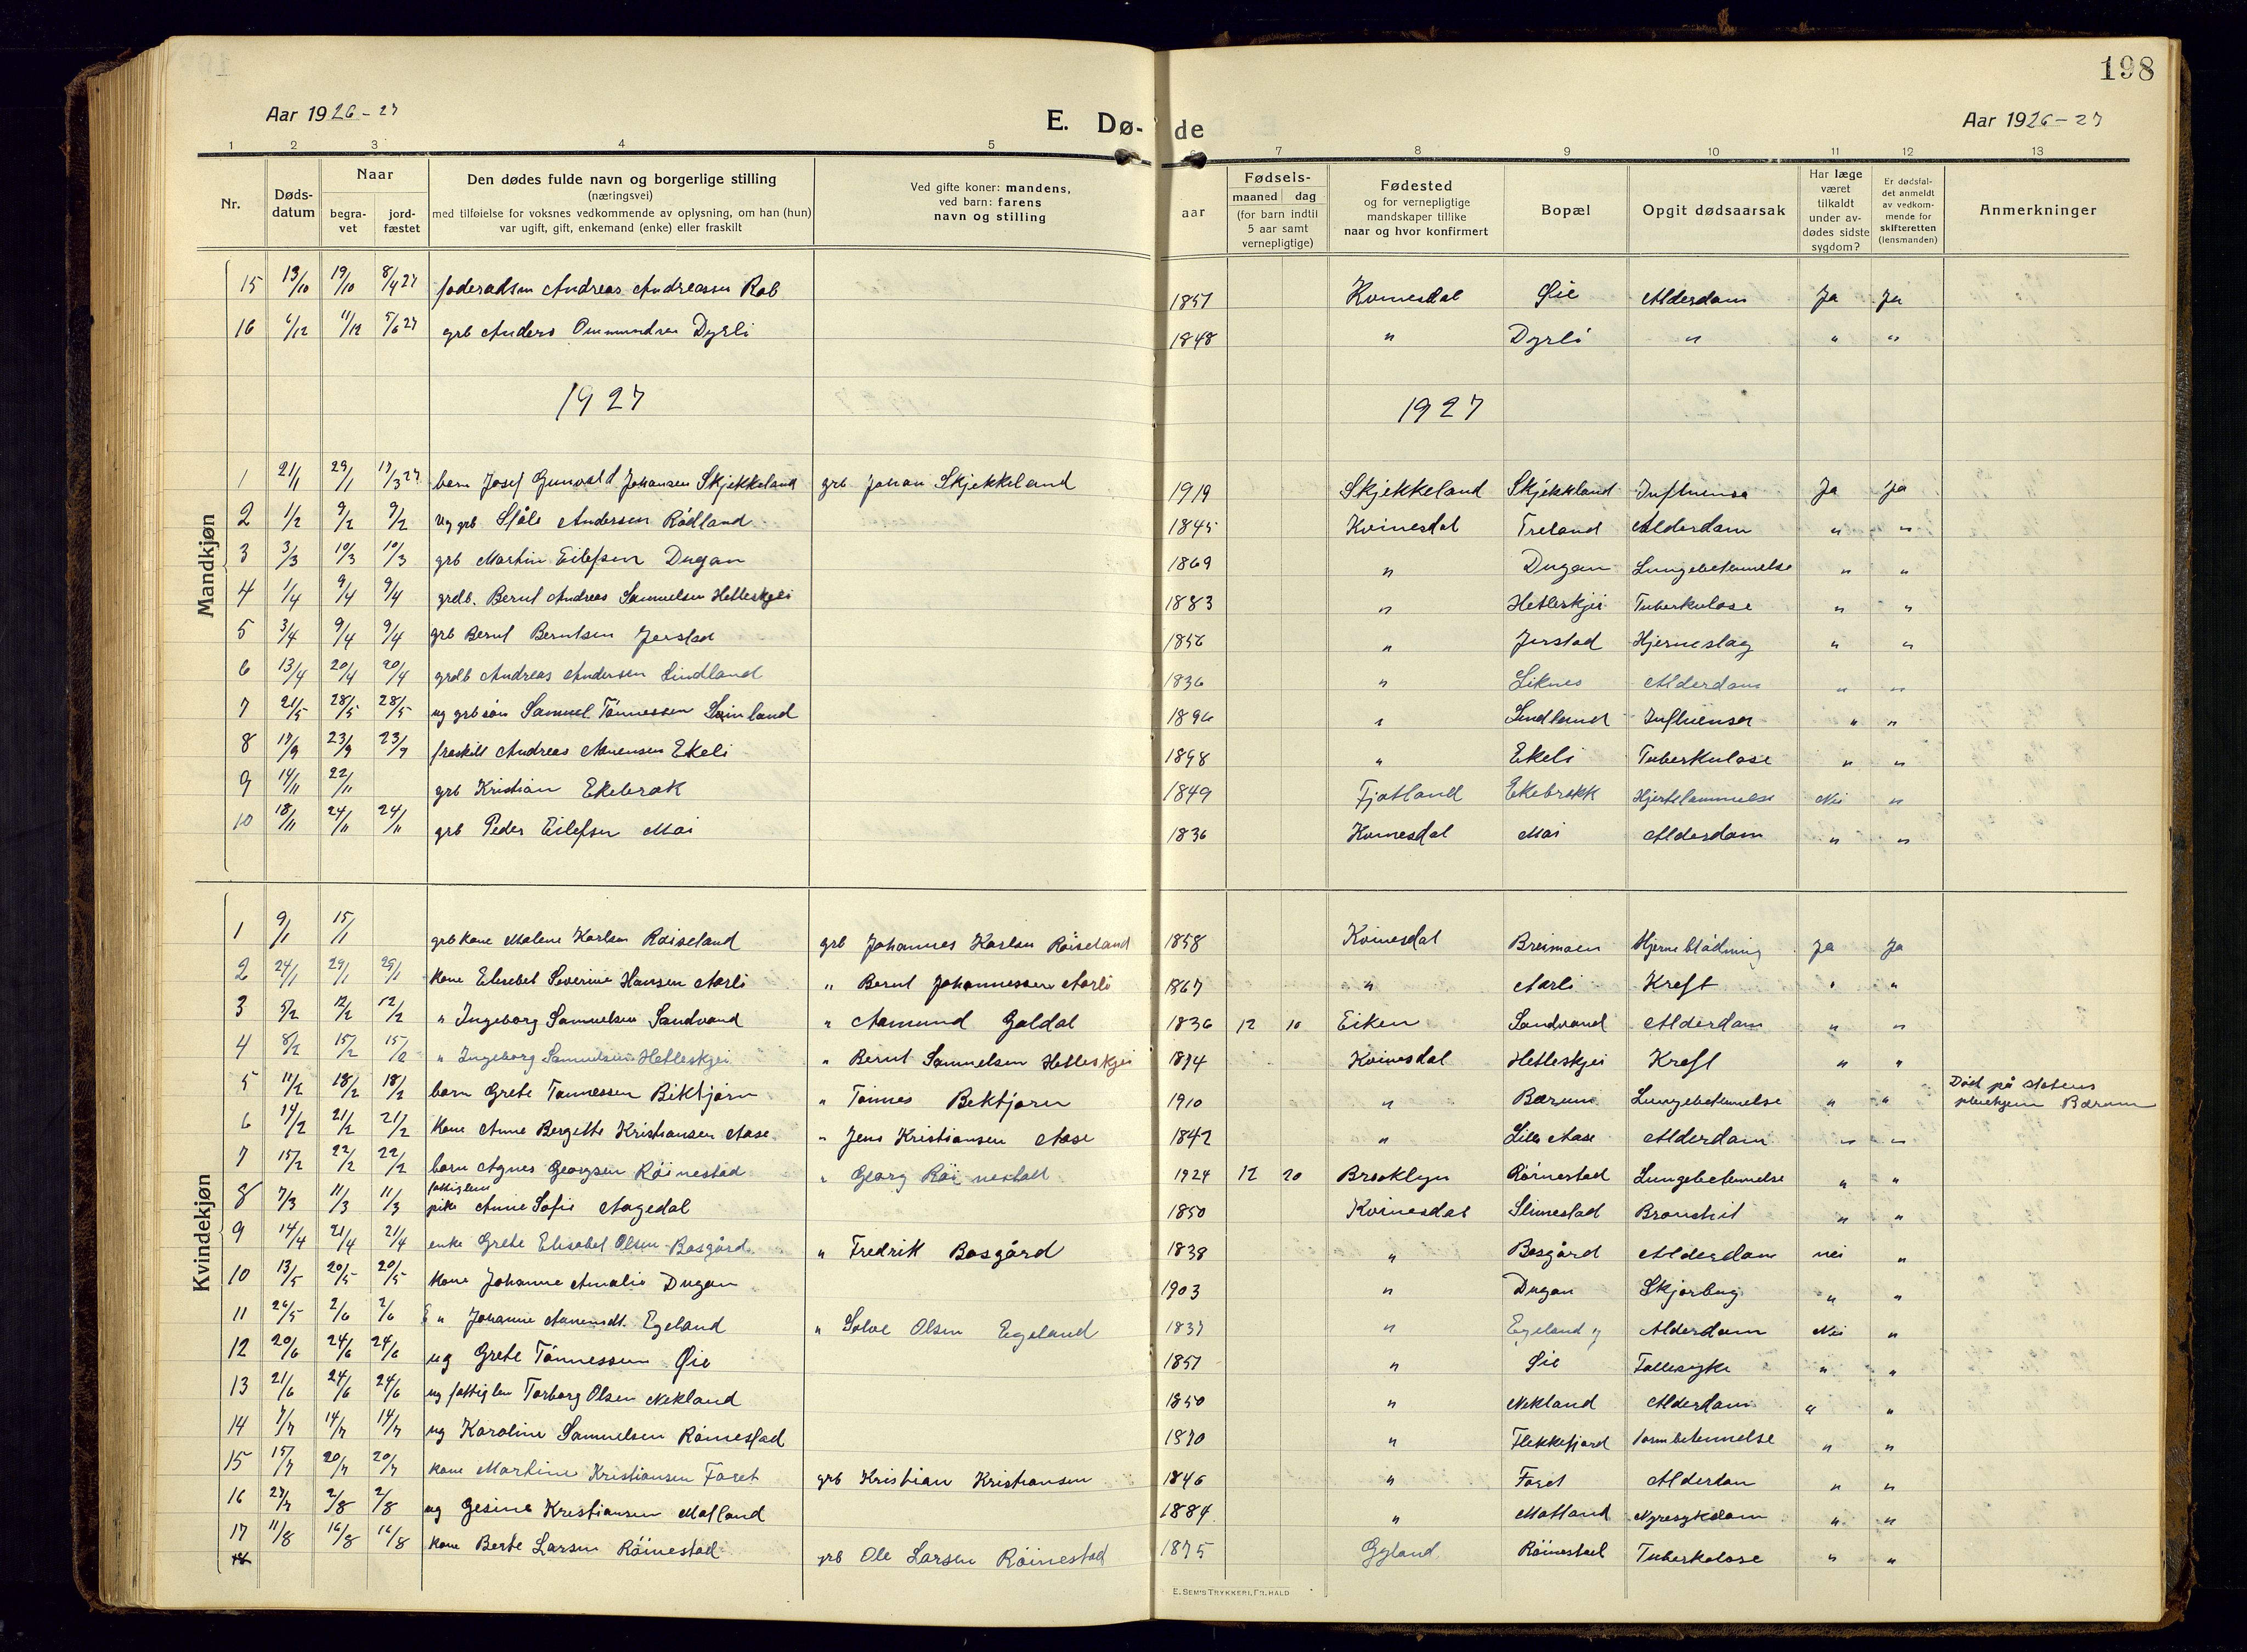 198
Aar 1926-27
E. Dø- de
Aar 1926-27
1 2 3 4 5 6 7 8 9 10 11 12 13
Nr.
Døds-
datum
Naar
begra-
vet
jord-
fæstet
Den dødes fulde navn og borgerlige stilling
(næringsvei)
med tilføielse for voksnes vedkommende av oplysning, om han (hun)
var ugift, gift, enkemand (enke) eller fraskilt
Ved gifte koner: mandens,
ved barn: farens
navn og stilling
aar
Fødsels-
maaned dag
(for barn indtil
5 aar samt
vernepligtige)
Fødested
og for vernepligtige
mandskaper tillike
naar og hvor konfirmert
Bopæl
Opgit dødsaarsak
Har læge
været
tilkaldt
under av-
dødes sidste
sygdom?
Er dødsfal-
det anmeldt
av vedkom-
mende for
skifteretten
(lensmanden)
Anmerkninger
15 13/10 19/10 8/4 27 føderadsm Andreas Andreassen Rob 1851 Kvinesdal Øie Alderdom Ja Ja
16 6/12 11/12 5/6 27 grb Anders Ommundsen Dyrli 1848 " Dyrli " " "
1927 1927
Mandkjøn
1 21/1 29/1 17/3 27 barn Josef Gunvald Johansen Skjekkeland grb Johan Skjekkeland 1919 Skjekkeland Skjekkland Influensa Ja Ja
2 1/2 9/2 9/2 ug grb Ståle Andersen Rødland 1845 Kvinesdal Treland Alderdom " "
3 3/3 10/3 10/3 grb Martin Eilefsen Dugan 1869 " Dugan Lungebetennelse " "
4 1/4 9/4 9/4 grdb. Bernt Andreas Samuelsen Hetleskjei 1883 " Hetleskjei Tuberkulose " "
5 3/4 9/4 9/4 grb Bernt Berntsen Jerstad 1856 " Jerstad Hjerneslag " "
6 13/4 20/4 20/4 grdb Andreas Andersen Lindland 1836 " Liknes Alderdom " "
7 21/5 28/5 28/5 ug grb søn Samuel Tønnessen 1896 " Lindland Influensa " "
8 17/9 23/9 23/9 fraskilt Andreas Ekeli 1898 " Ekeli Tuberkulose " "
9 14/11 22/11 grb Kristian Ekebrok 1849 Fjotland Ekebrokk Hjertelammelse Nei "
10 18/11 24/11 24/11 grb Peder Eilefsen Moi 1836 Kvinesdal Moi Alderdom " "
Kvindekjøn
1 9/1 15/1 grb kone Malene Karlsen Røiseland grb Johannes Karlsen Røiseland 1858 Kvinesdal Breimoen Hjerneblødning Ja Ja
2 24/1 29/1 29/1 kone Elisebet Severine Hansen Aarli " Bernt Johannessen Aarli 1867 " Aarli Kreft " "
3 5/2 12/2 12/2 " Ingeborg Samuelsen Sandvand " Aamund Galdal 1836 12 10 Eiken Sandvand Alderdom " "
4 8/2 15/2 15/2 " Ingeborg Samuelsen Hetleskjei " Bernt Samuelsen Hetleskjei 1894 Kvinesdal Hetleskjei Kreft " "
5 11/2 18/2 18/2 barn Grete Tønnessen Bektjørn " Tønnes Bektjørn 1910 " Bærum Lungebetennelse " " Død på statens pleiehjem Bærum
6 14/2 21/2 21/2 kone Anne Bergitte Kristiansen Aase " Jens Kristiansen Aase 1842 " Lille Aase Alderdom " "
7 15/2 22/2 22/2 barn Agnes Georgsen Røinestad " Georg Røinestad 1924 12 20 Brooklyn Røinestad Lungebetennelse " "
8 7/3 11/3 11/3 fattiglem pike Anne Sofie Aagedal 1850 Kvinesdal Slimestad Bronchit " "
9 14/4 21/4 21/4 enke Grete Elisabet Olsen Bosgård " Fredrik Bosgård 1838 " Bosgård Alderdom nei "
10 13/5 20/5 20/5 kone Johanne Amalie Dugan 1903 " Dugan Skjørbug " "
11 26/5 2/6 2/6 " Johanne Egeland " Solve Olsen Egeland 1837 " Egeland Alderdom Nei "
12 20/6 24/6 24/6 ug Grete Tønnessen Øie 1851 " Øie Fallesyke " "
13 21/6 24/6 24/6 ug fattiglem Torborg Olsen Nekland 1850 " Nekland Alderdom " "
14 7/7 14/7 14/7 ug Karoline Samuelsen Røinestad 1870 " Flekkefjord Tarmbetennelse " "
15 15/7 20/7 20/7 kone Martine Kristiansen Faret grb Kristian Kristiansen 1846 " Faret Alderdom " "
16 27/7 2/8 2/8 ug Gesine Kristiansen Motland 1884 " Motland Nyresykdom " "
17 11/8 16/8 16/8 kone Berte Larsen Røinestad grb Ole Larsen Røinestad 1875 Gyland Røinestad Tuberkulose " "
18
E. SEM'S TRYKKERI, FR.HALD